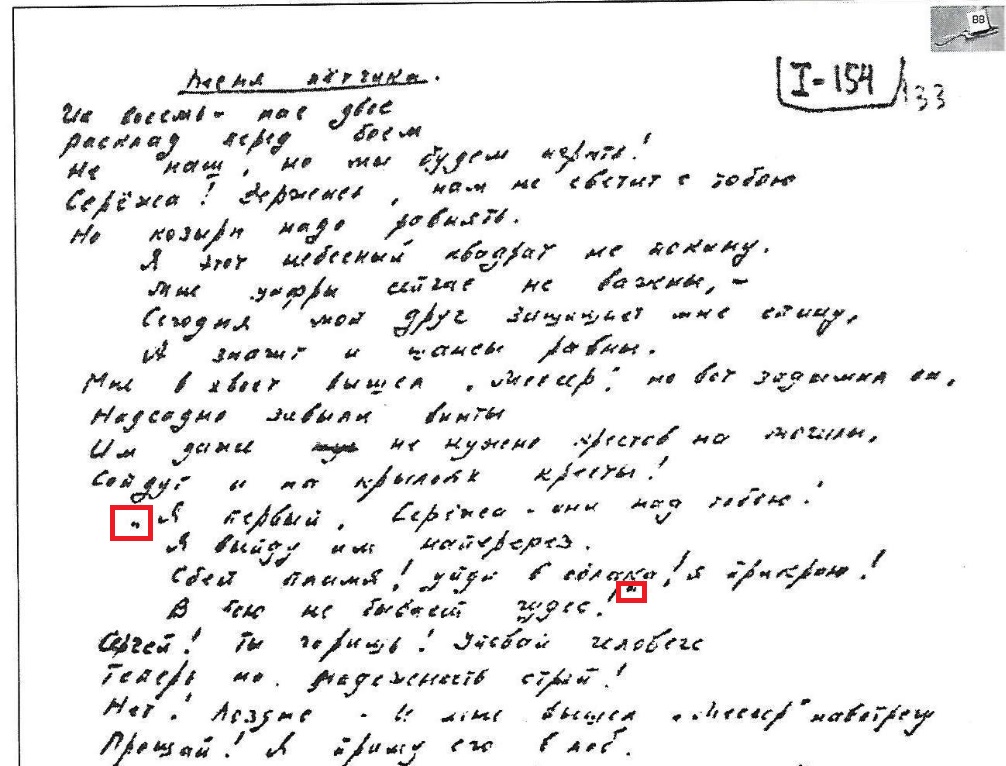 BB
Песня лётчика.
I-154/133
Их восемь - нас двое
расклад перед боем
Не наш, но мы будем играть!
Серёжа! Держись, нам не светит с тобою
Но козыри надо равнять.
Я этот небесный квадрат не покину.
Мне цифры сейчас не важны, -
Сегодня мой друг защищает мне спину,
А значит и шансы равны.
Мне в хвост вышел „Мессер", но вот задымил он,
Надсадно завыли винты
Им даже не нужно крестов на могилы,
Сойдут и на крыльях кресты!
„Я первый, Серёжа - они над тобою!
Я выйду им наперерез.
Сбей пламя! уйди в облака! я прикрою!
В бою не бывает чудес!"
Сергей! Ты горишь! Уповай человече
Теперь на надежность строп!
Нет! Поздно - И мне вышел „Мессер" навстречу
Прощай! Я приму его в лоб.